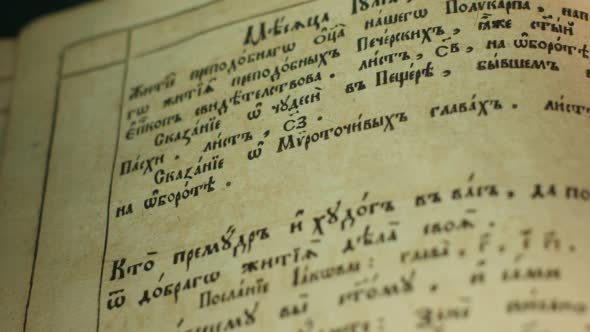 Мѣсѧца Іꙋлїа
Житїѐ преподо́бнагѡ ѻ҆ц҃а̀ на́шегѡ Полѷка́рпа, нап
гѡ житїѧ̀ преподо́бныхъ Пече́рскихъ,
є҆пⷭ҇копъ свидѣ́телствова. ли́стъ, с҃в, на ѡ҆боро́тѣ
Сказа́нїе ѡ҆ чꙋдесѝ въ Пеще́рѣ, бы́вшемъ
Па́схи. ли́стъ, с҃з.
Сказа́нїе ѡ҆ Мѷроточи́выхъ глава́хъ. ли́ст
на ѡ҆боро́тѣ.
Кто̀ премꙋ́дръ и҆ хꙋдо́гъ въ ва́съ, да по
ѿ до́брагѡ житїѧ̀ дѣла̀ своѧ̑.
Посла́нїе І҆а́кѡвле: глава̀, г҃. і҆ г҃і.